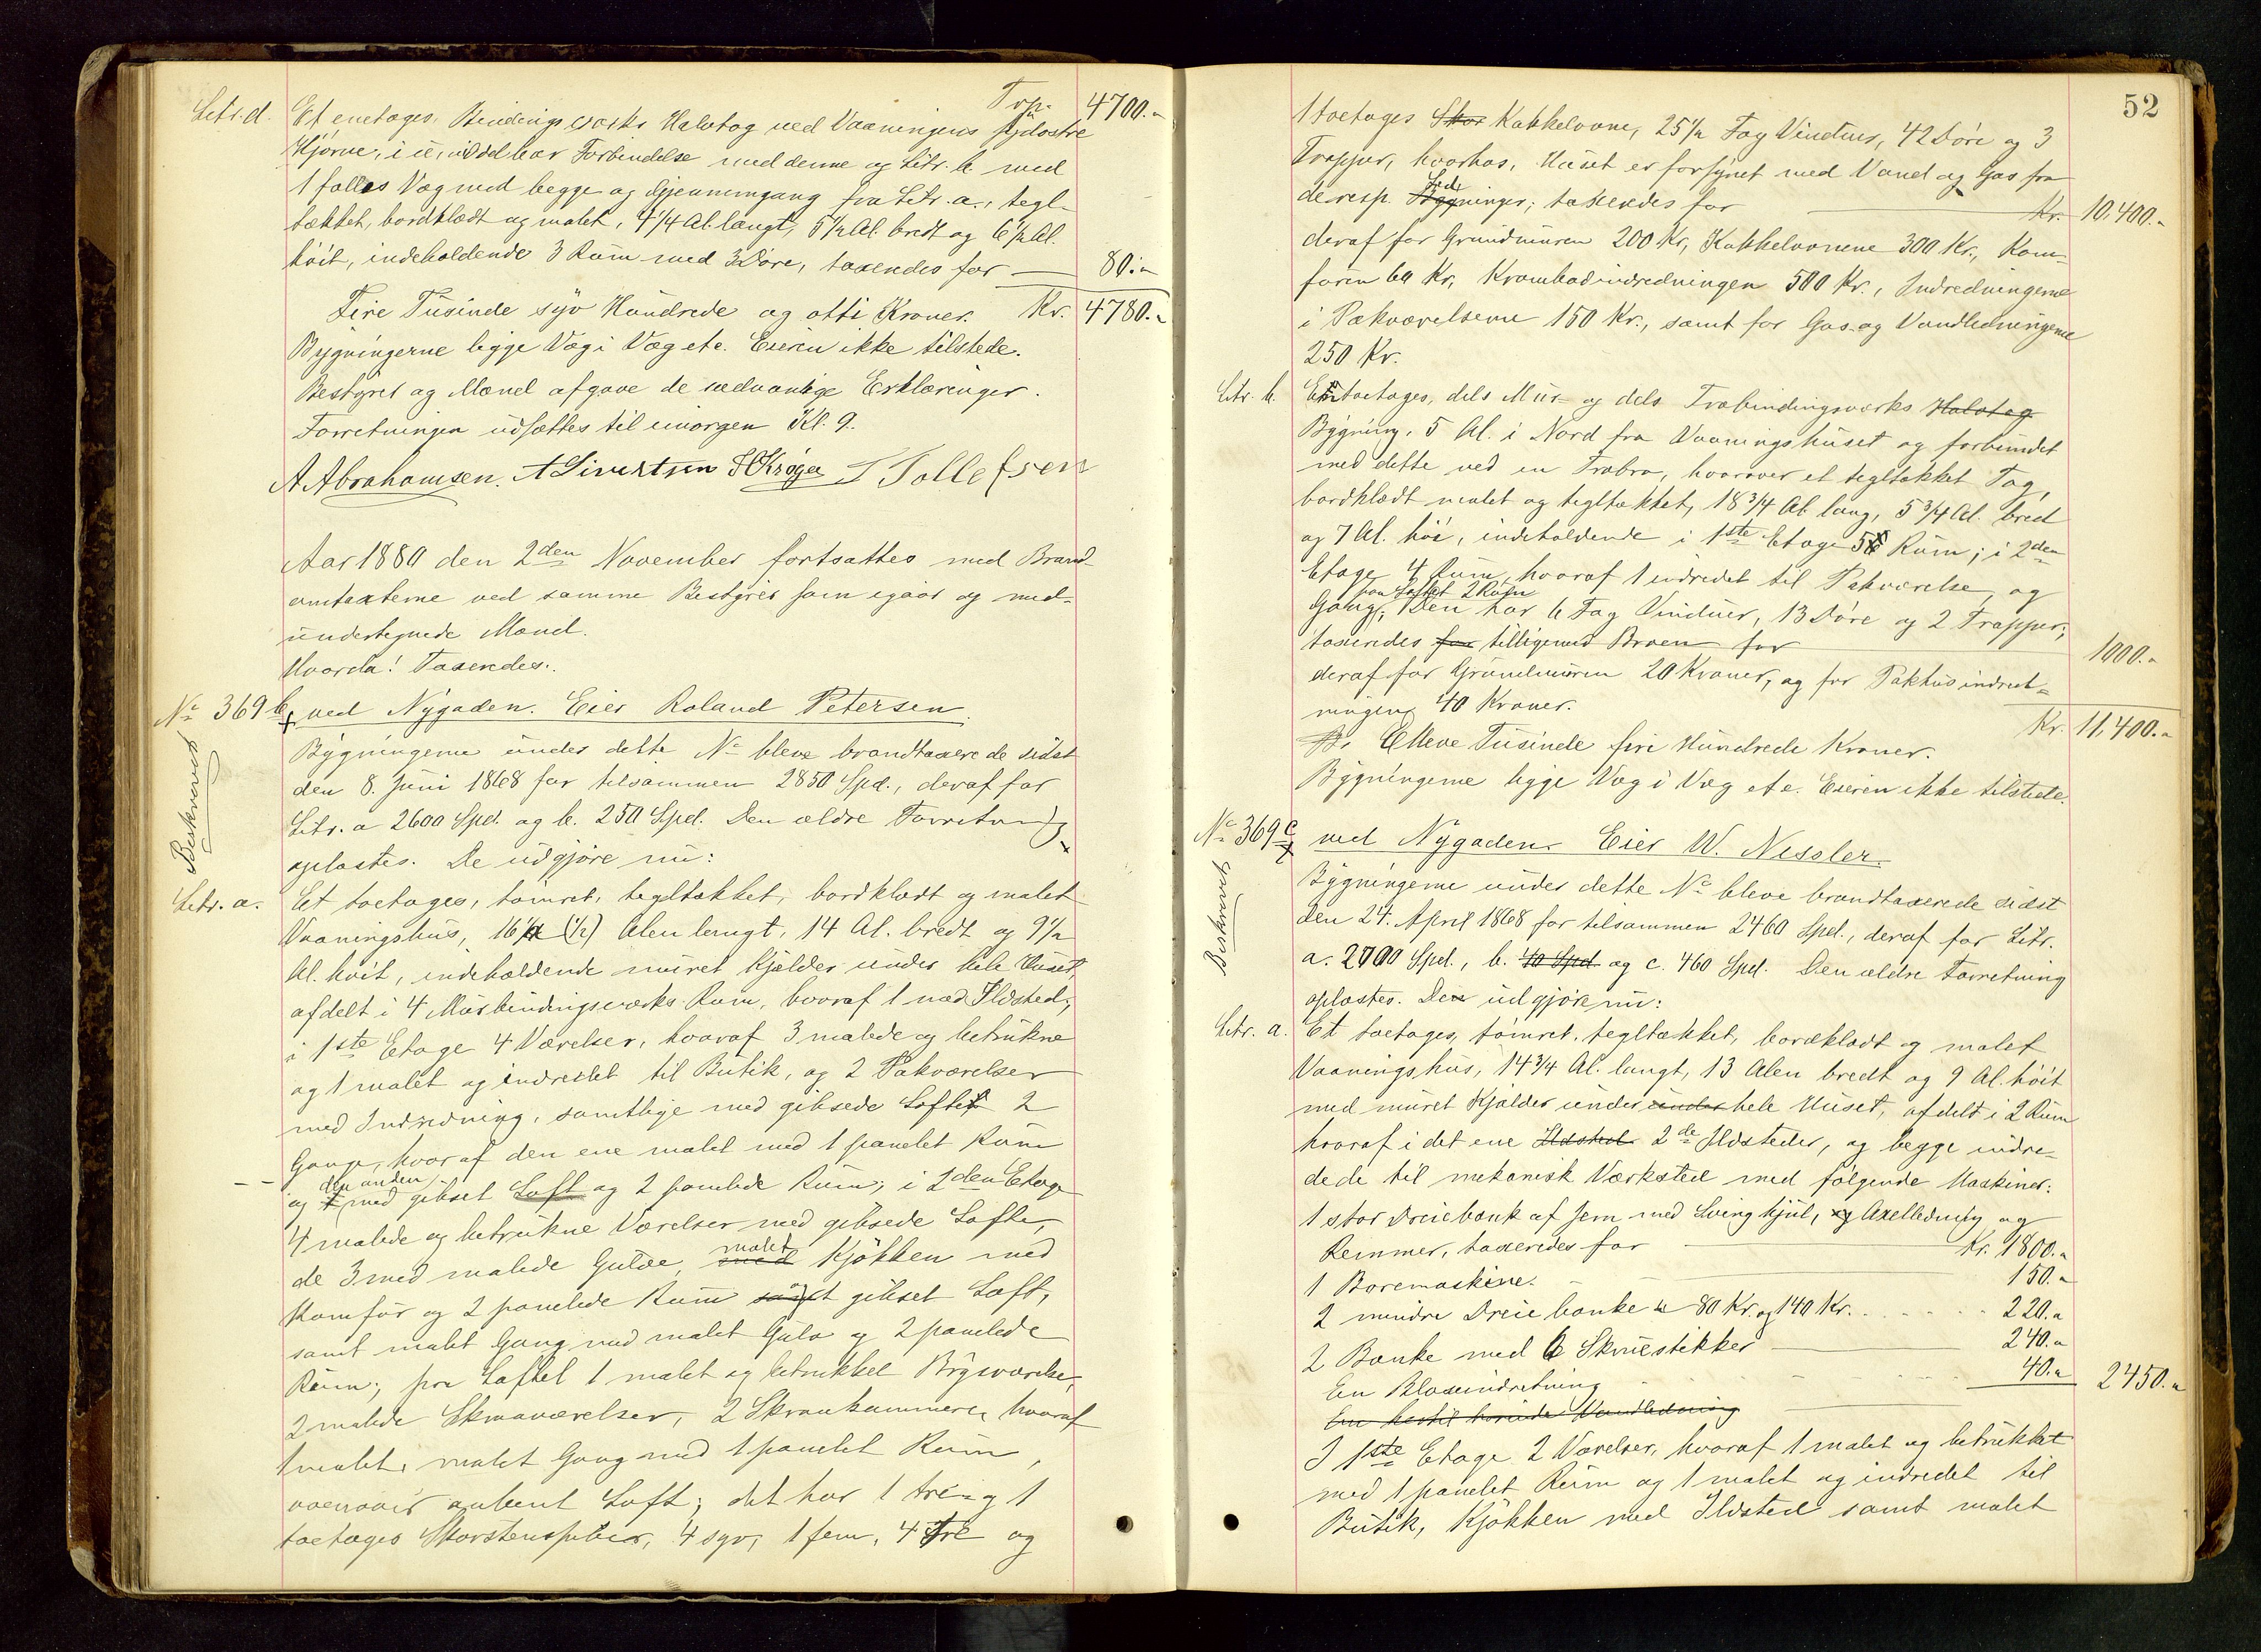 Trp. 4700.-
Litr. d. Et enetages, Bindingsværks Halvtag ved Vaaningens sydostre
Hjørne, i umiddelbar Forbindelse med denne og Litr. b. med
1 fælles Væg med begge og Gjennemgang fra Litr. a., tegl-
tækket, bordklædt og malet, 4 1/4 Al. langt, 5 1/2 Al. bredt og 6 1/2 Al.
høit, indeholdende 3 Rum med 3 Døre, taxeredes for — 80.-
Fire Tusinde syv Hundrede og otti Kroner. Kr. 4780.-
Bygningerne ligge Væg i Væg etc. Eieren ikke tilstede.
Bestyrer og Mænd afgave de sedvanlige Erklæringer.
Forretningen udsættes til imorgen Kl. 9.
A Abrahamsen. A Sivertsen F Krøger T Tollefsen
Aar 1880 den 2den November fortsattes med Brand-
omtaxterne ved samme Bestyrer som igaar og med-
undertegnede Mænd.
Hvorda! Taxeredes:
No 369 b, ved Nygaden. Eier Roland Petersen.
Beskrevet
Bygningerne under dette No bleve brandtaxerede sidst
den 8. Juni 1868 for tilsammen 2850 Spd., deraf for
Litr. a 2600 Spd. og b. 250 Spd. Den ældre Forretning
oplæstes. De udgjøre nu:
Litr. a. Et toetages, tømret, tegltækket, bordklædt og malet
Vaaningshus, 16 1/2 (1/2) Alen langt, 14 Al. bredt og 9 1/2
Al. høit, indeholdende muret Kjælder under hele Huset,
afdelt i 4 Murbindingsværks Rum, hvoraf 1 med Ildsted;
i 1ste Etage 4 Værelser, hvoraf 3 malede og betrukne
og 1 malet og indredet til Butik, og 2 Pakværelser
med Indredning, samtlige med gibsede Lofter 2
Gange, hvoraf den ene malet med 1 panelet Rum
den anden
og med gibset Loft og 2 panelede Rum; i 2den Etage
4 malede og betrukne Værelser med gibsede Lofter,
malet
de 3 med malede Gulve, med Kjøkken med
Komfur og 2 panelede Rum og gibset Loft,
samt malet Gang med malet Gulv og 2 panelede
Rum; paa Loftet 1 malet og betrukket Bygværelse,
2 malede Skraaværelser, 2 Skraakammere, hvoraf
1 malet, malet Gang med 1 panelet Rum,
ovenover aabent Loft; det har 1 tre- og 1
toetages Skorstenspiber, 4 syv, 1 fem, 4 tre og
52
1 toetages Skor Kakkelovne, 25 1/2 Fag Vinduer, 42 Døre og 3
Trapper, hvorhos, Huset er forsynet med Vand og Gas fra
Led
de resp. Bygninger; taxeredes for — Kr. 10,400.-
deraf for Grundmuren 200 Kr, Kakkelovnene 300 Kr., Kom-
furen 60 Kr, Krambodindredningen 500 Kr., Indredningerne
i Pakværelserne 150 Kr., samt for Gas- og Vandledningerne
250 Kr.
Litr. b. En toetages, dels Mur- og dels Træbindingsværks Halvtag
Bygning, 5 Al. i Nord fra Vaaningshuset og forbundet
med dette ved en Træbro, hvorover et tegltækket Tag,
bordklædt malet og tegltækket, 18 3/4 Al. lang, 5 3/4 Al. bred
og 7 Al. høi, indeholdende i 1ste Etage 5 Rum; i 2den
Etage 4 Rum, hvoraf 1 indredet til Pakværelse, og
paa Loftet 2 Rum
Gang; Den har 6 Fag Vinduer, 13 Døre og 2 Trapper;
taxeredes for tilligemed Broen for 1000.-
deraf for Grundmuren 20 Kroner, og for Pakhusindred-
ningen 40 Kroner. Kr. 11,400.-
Elleve Tusinde fire Hundrede Kroner.
Bygningerne ligge Væg i Væg etc. Eieren ikke tilstede.
No 369 c ved Nygaden. Eier W. Nissler.
Beskrevet
Bygningerne under dette No bleve brandtaxerede sidst
den 24. April 1868 for tilsammen 2460 Spd., deraf for Litr.
a. 2000 Spd., b. 40 Spd. og c. 460 Spd. Den ældre Forretning
oplæstes. De udgjøre nu:
Litr. a. Et toetages, tømret, tegltækket, bordklædt og malet
Vaaningshus, 14 3/4 Al. langt, 13 Alen bredt og 9 Al. høit
med muret Kjælder under under hele Huset, afdelt i 2 Rum
hvoraf i det ene Ildsted 2de Ildsteder, og begge indre-
dede til mekanisk Værksted med følgende Maskiner:
1 stor Dreiebænk af Jern med Svinghjul, og Axelledning og
Remmer, taxeredes for — Kr. 1800.-
1 Boremaskine. — 150.-
2 mindre Dreiebænke à 80 Kr. og 140 Kr. . . . 220.-
2 Bænke med 6 Skruestikker — 240.-
En Blæseindretning 40.- 2450.-
En hertil hørende Vandledning
I 1ste Etage 2 Værelser, hvoraf 1 malet og betrukket
med 1 panelet Rum og 1 malet og indredet til
Butik, Kjøkken med Ildsted samt malet